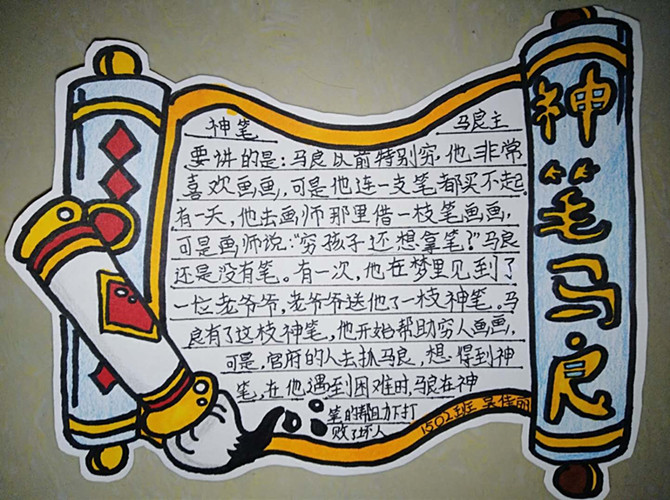 神笔马良
神笔　　马良主
要讲的是：马良以前特别穷，他非常
喜欢画画，可是他连一支笔都买不起
有一天，他去画师那里借一枝笔画画，
可是画师说：“穷孩子还想拿笔？”马良
还是没有笔。有一次，他在梦里见到了
一位老爷爷，老爷爷送他了一枝神笔。马
良有了这枝神笔，他开始帮助穷人画画，
可是，官府的人去抓马良，想得到神
笔，在他遇到困难时，马良在神
笔的帮助下打
败了坏人
1502班 吴佳